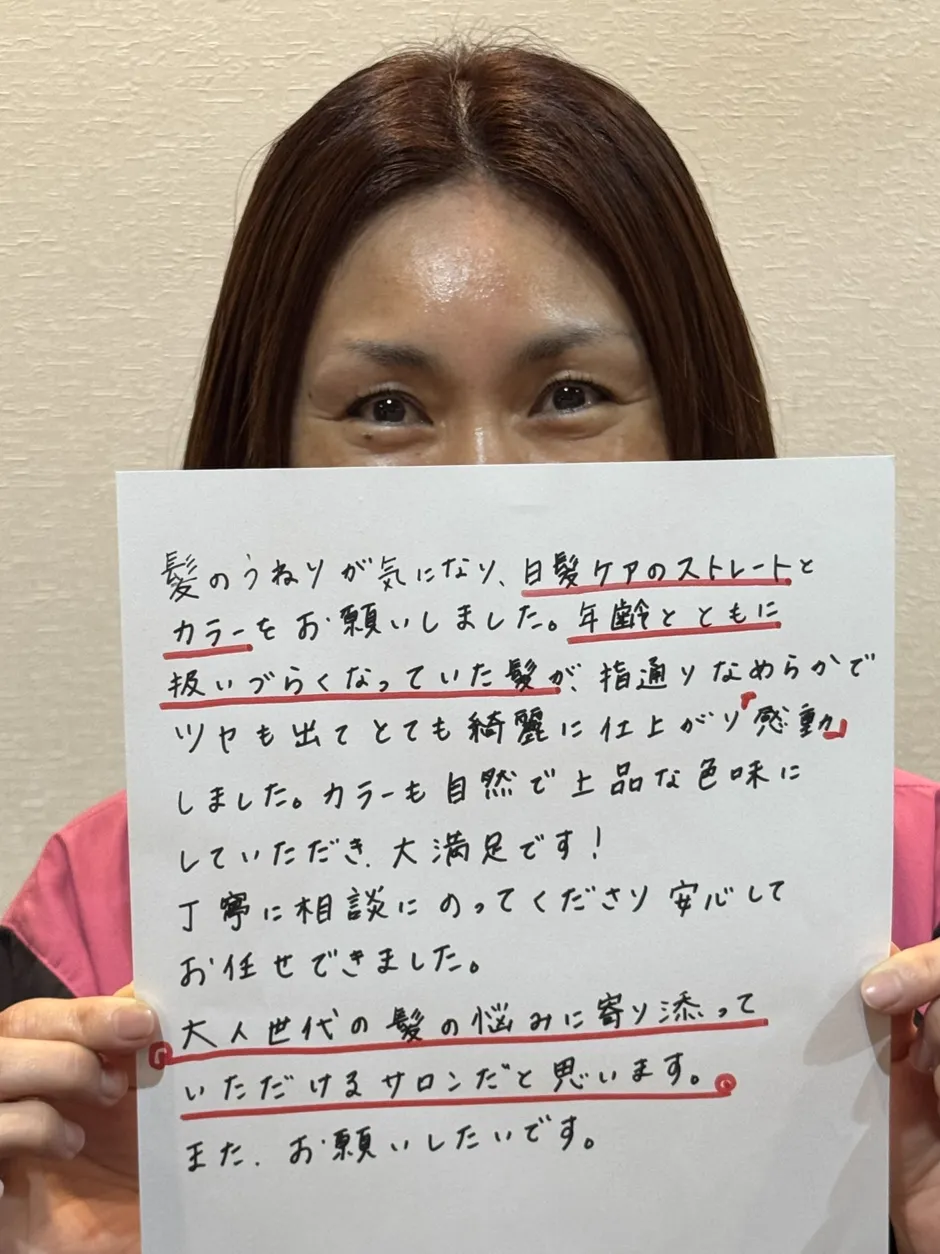 髪のうねりが気になり、白髪ケアのストレートと
カラーをお願いしました。年齢とともに
扱いづらくなっていた髪が、指通りなめらかで
ツヤも出てとても綺麗に仕上がり「感動」
しました。カラーも自然で上品な色味に
していただき、大満足です!
丁寧に相談にのってくださり安心して
お任せできました。
大人世代の髪の悩みに寄り添って
いただけるサロンだと思います。
また、お願いしたいです。